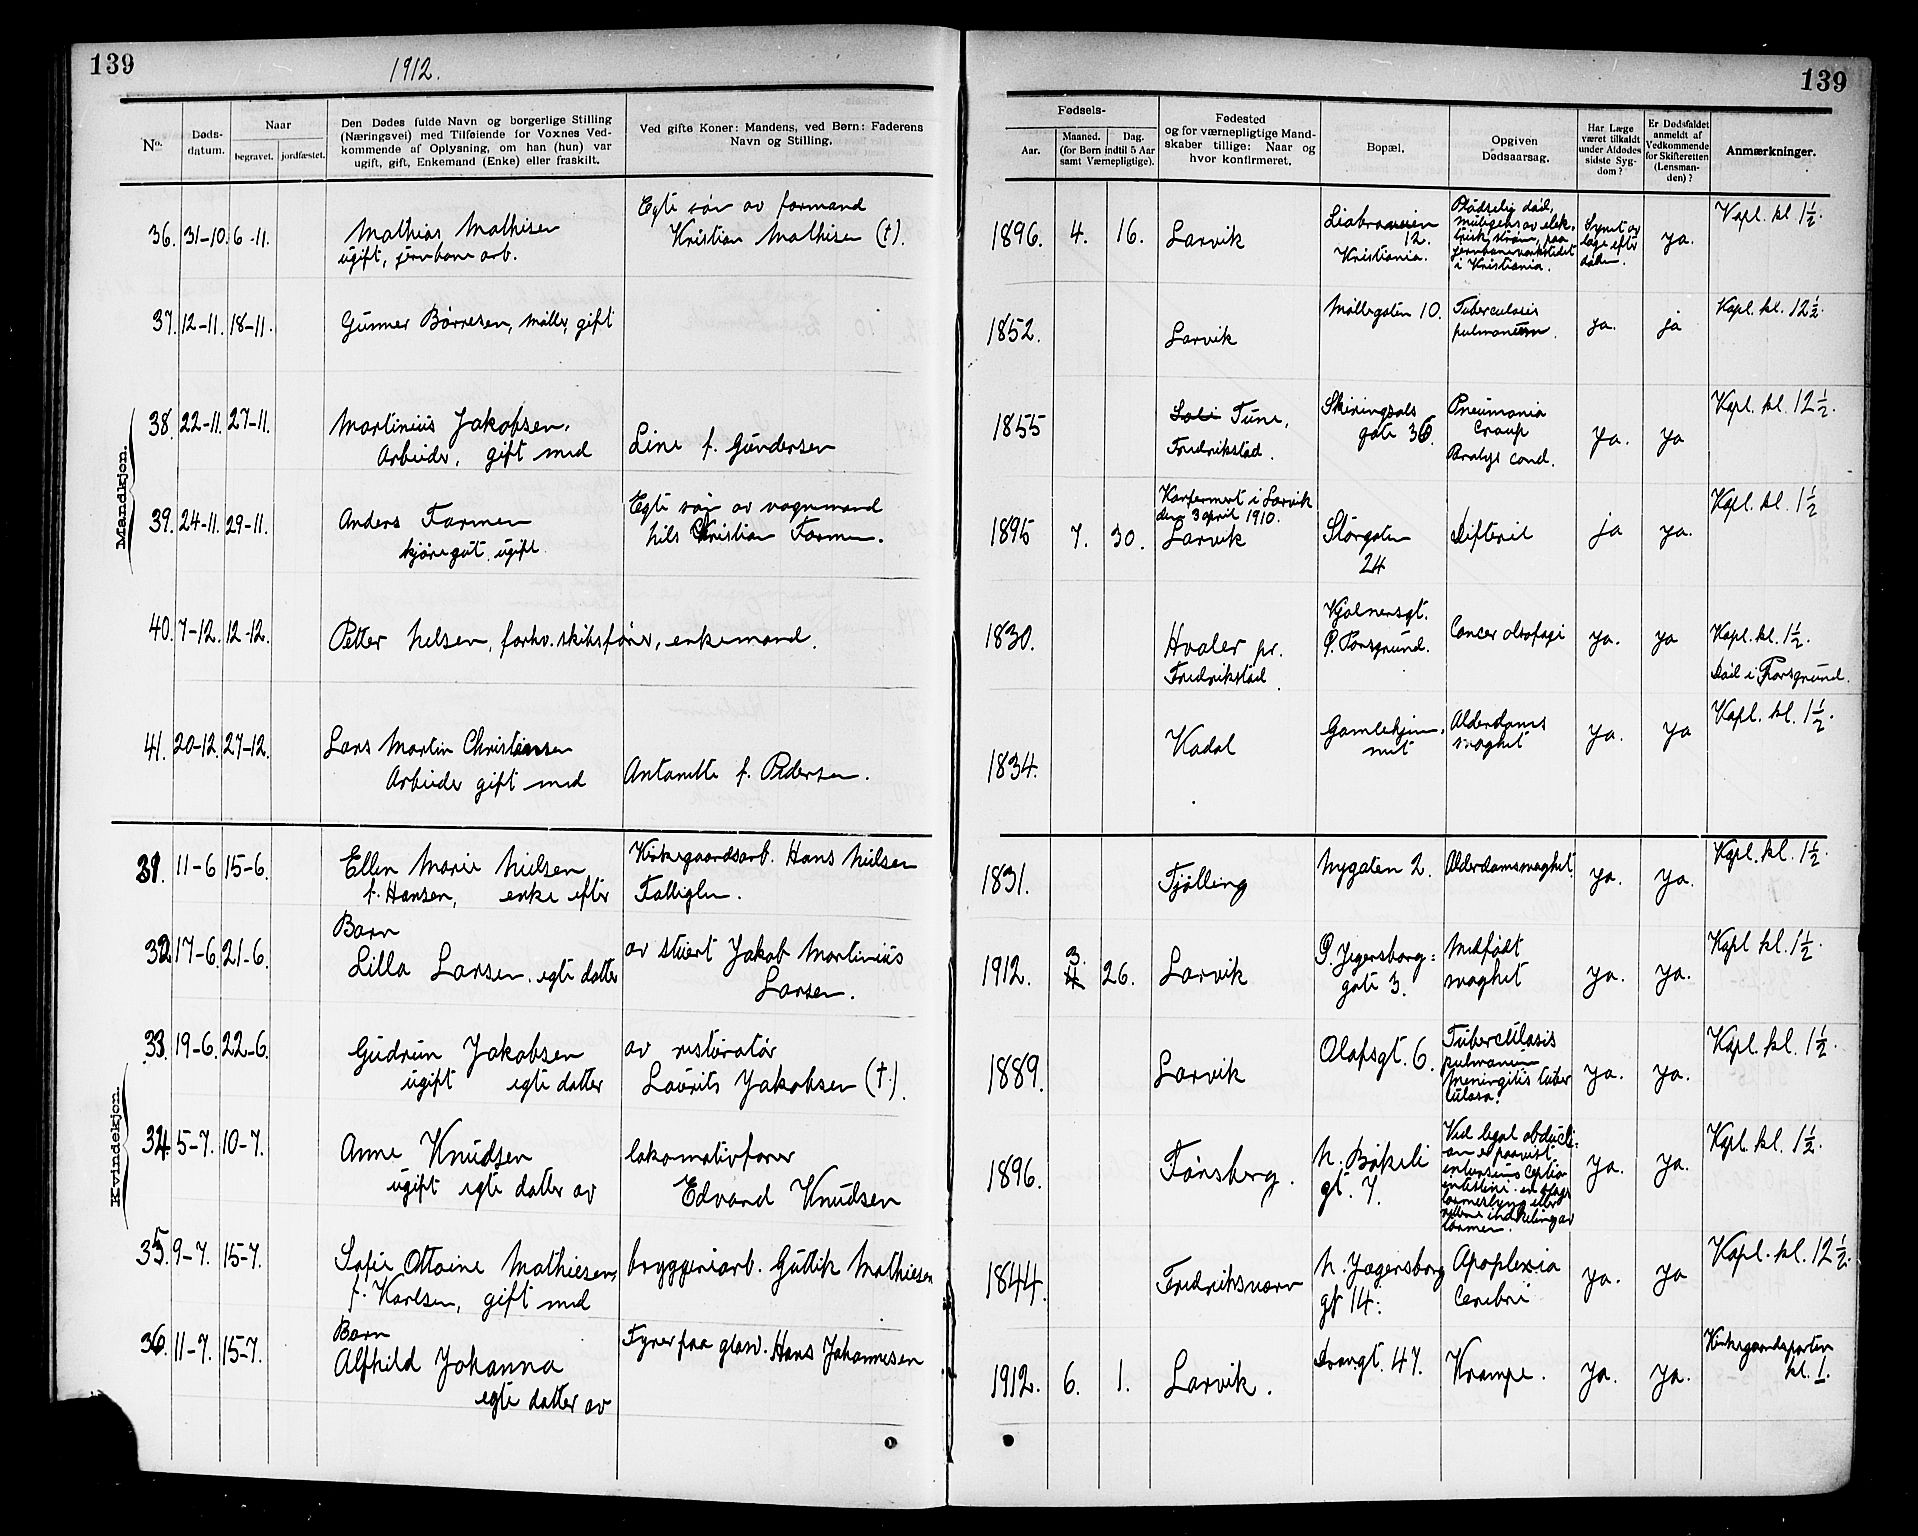 139
1912.
139
No.
Døds-
datum.
Naar
begravet. jordfæstet.
Den Dødes fulde Navn og borgerlige Stilling
(Næringsvei) med Tilføiende for Voxnes Ved-
kommende af Oplysning, om han (hun) var
ugift, gift, Enkemand (Enke) eller fraskilt.
Ved gifte Koner: Mandens, ved Børn: Faderens
Navn og Stilling.
Fødsels-
Aar.
Maaned. Dag.
(for Børn indtil 5 Aar
samt Værnepligtige).
Fødested
og for værnepligtige Mand-
skaber tillige: Naar og
hvor konfirmeret.
Bopæl.
Opgiven
Dødsaarsag.
Har Læge
været tilkaldt
under Afdødes
sidste Syg-
dom?
Er Dødsfaldet
anmeldt af
Vedkommende
for Skifteretten
(Lensman-
den)?
Anmærkninger.
Mandkjøn.
36. 31-10. 6-11.
Mathias Mathisen
ugift, jernbane arb.
Egte søn av formand
Kristian Mathisen (†).
1896. 4. 16. Larvik
12.
Kristiania.
Pludselig død,
muligens av elek-
trisk strøm, paa
jernbaneverkstedet
i Kristiania.
Synet av
læge efter
døden.
ja.
Kapl. kl 1½.
37. 12-11. 18-11.
Gunner Børresen, møller, gift
1852. Larvik
Møllegaten 10.
Tuberculosis
pulmonum.
ja. ja
Kapl. kl. 12½.
38. 22-11. 27-11.
Martinius Jakobsen,
Arbeider, gift med
Line f. Gundersen
1855
Tune,
Fredrikstad.
Skiringsals
gate 36.
Pneumonia
Croup
cond.
ja. ja
Kapl. kl. 12½.
39. 24-11. 29-11.
Anders Farmen
kjøregut. ugift.
Egte søn av vognmand
Nils Kristian Farmen.
1895 7. 30.
Konfermert i Larvik
den 3 april 1910.
Larvik
Storgaten
24
Difterit
ja ja.
Kapl. kl. 1½
40. 7-12. 12-12.
Petter Nelsen, forhv. skibsfører, enkemand.
1830.
Hvaler pr.
Fredrikstad
Kjølnersgt.
P. Porsgrund.
Cancer olsofagi
ja. ja
Kapl. kl. 1½.
Død i Porsgrund.
41. 20-12. 27-12.
Lars Martin Christensen
Arbeider gift med
Antonette f. Pedersen.
1834.
Kodal
Gamlehjem-
met
Alderdoms
svaghet
ja. ja
Kapl. kl. 1½.
Kvindekjøn.
31. 11-6 15-6.
Ellen Marie Nielsen
f. Hansen, enke efter
Kirkegaardsarb. Hans Nielsen
1831.
Tjølling
Nygaten 2.
Alderdomsvaghet.
ja. ja.
Kapl. kl. 1½.
32 17-6. 21-6.
Barn
Lilla Larsen. egte datter
av stuert Jakob Martinius
Larsen.
1912. 3. 4 26. Larvik
Ø. Jegersborg-
gate 3.
Medfødt
svaghet
ja. ja.
Kapl kl. 1½.
33. 19-6. 22-6.
Gudrun Jakobsen
ugift egte datter
av restoratør
Laurits Jakobsen (†).
1889. Larvik
Olafsgt. 6.
Tuberculosis
pulmonum
meningitis tuber
culosa.
ja. ja.
Kapl. kl. 1½.
34. 5-7. 10-7.
Anne Knudsen
ugift egte datter av
lokomotivfører
Edvard Knudsen
1896. Tønsberg.
N. Bøkeli
gt. 7.
Ved legal obducti-
on er paavist
ja. ja.
Kapl. kl. 1½.
35. 9-7. 15-7.
Sofie Ottoine Mathiesen,
f. Karlsen, gift med
bryggeriarb. Guttik Mathiesen
1844. Fredriksværn
N. Jægersborg
gt 14.
Apoplexia
Cerebri
ja. ja
Kapl. kl. 12½.
36. 11-7. 15-7.
Barn
Alfhild Johanna
egte datter av
Fyrer paa glasv. Hans Johannesen
1912. 6. 1. Larvik.
47.
Krampe.
ja. ja.
Kirkegaardsporten
kl. 1.